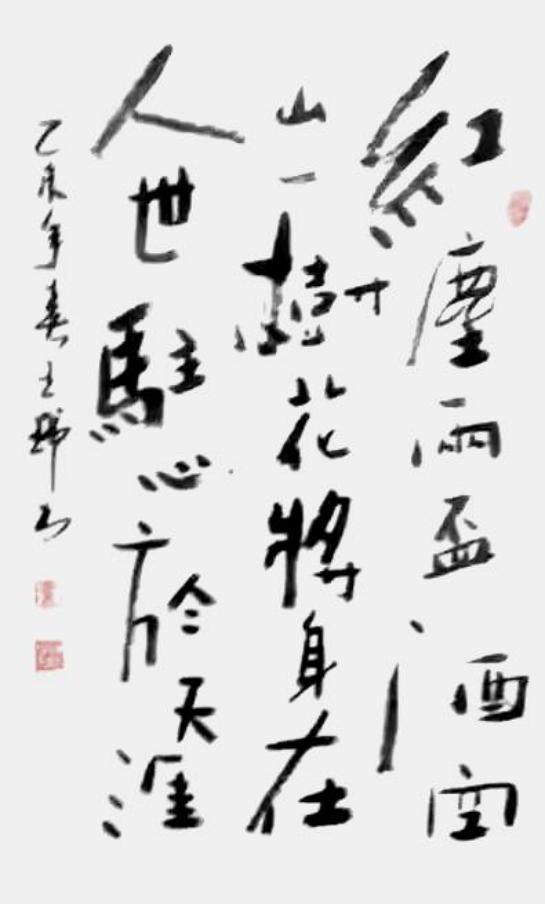 紅塵兩盃酒空
山一樹花將身在
人世駐心於天涯
乙未年春王